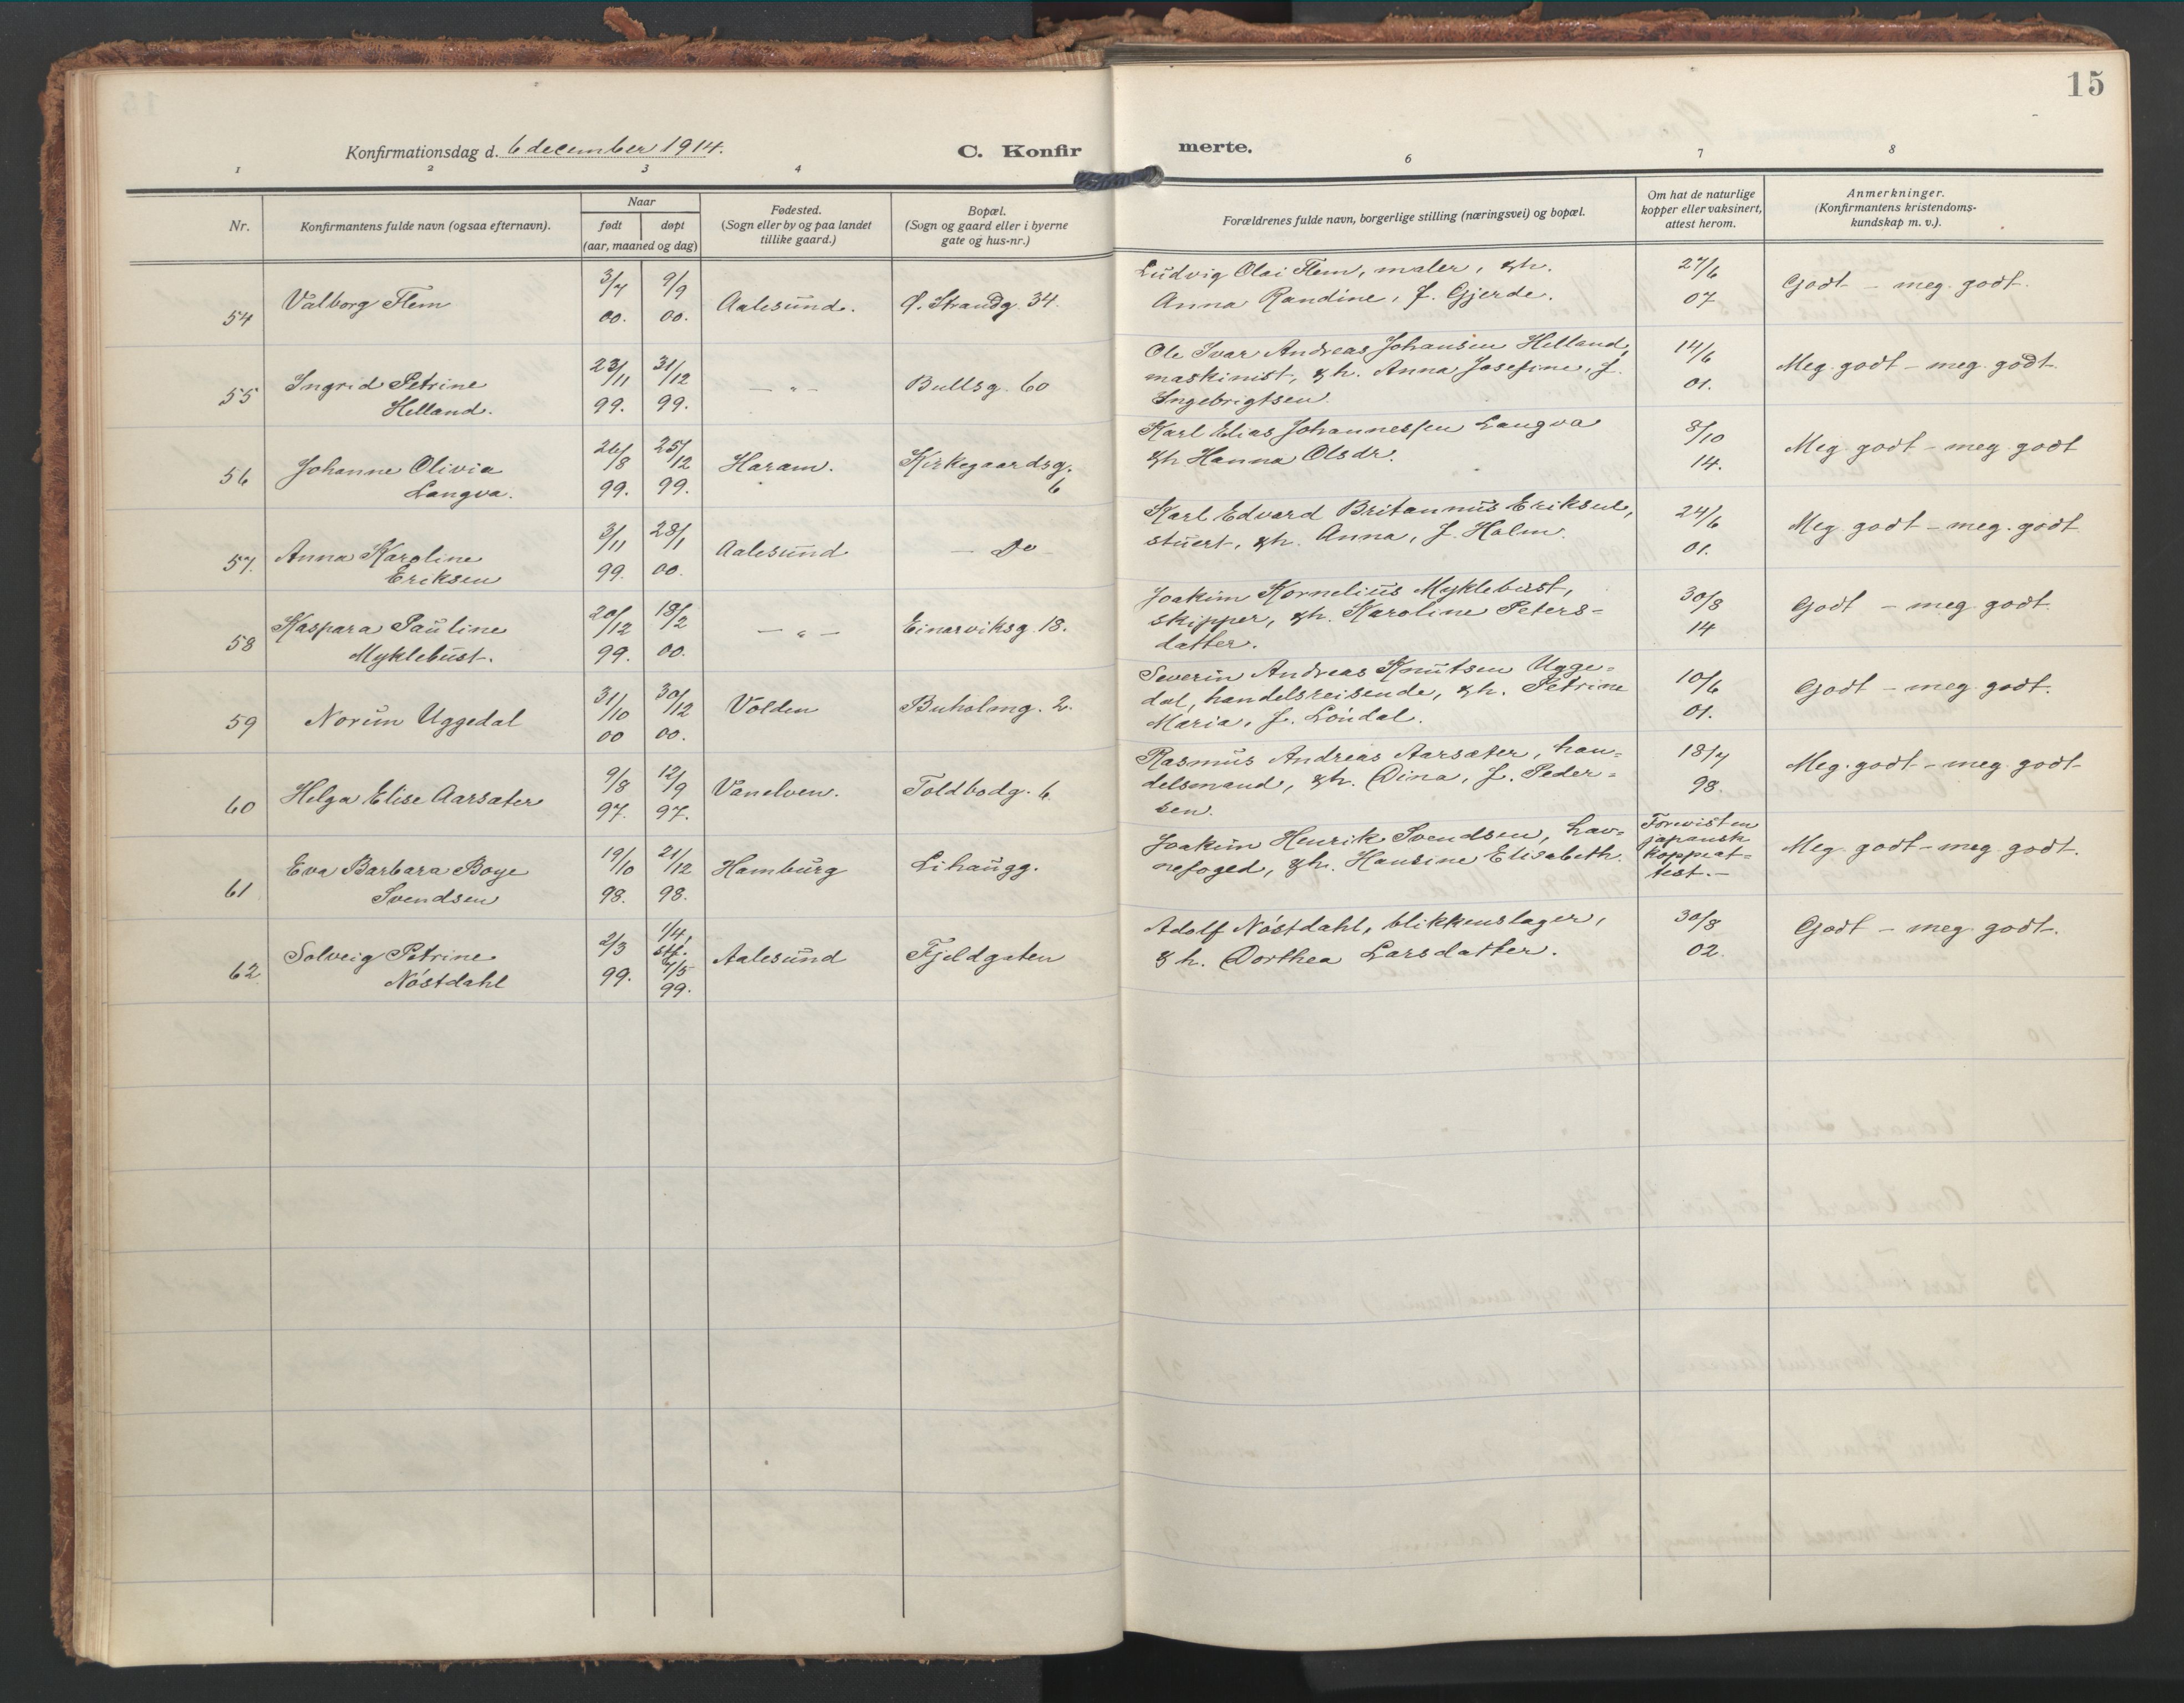 15
Konfirmationsdag d. 6 december 1914.
C. Konfirmerte.
1 2 3 4 6 7 8
Nr.
Konfirmantens fulde navn (ogsaa efternavn).
Naar
født døpt
(aar, maaned og dag)
Fødested.
(Sogn eller by og paa landet
tillike gaard.)
Bopæl.
(Sogn og gaard eller i byerne
gate og hus-nr.)
Forældrenes fulde navn, borgerlige stilling (næringsvei) og bopæl.
Om hat de naturlige
kopper eller vaksinert,
attest herom.
Anmerkninger.
(Konfirmantens kristendoms-
kundskap m. v.).
54
Valborg Flem
3/7
00.
9/9
00.
Aalesund.
Ø. Strandg. 34.
Ludvig Olai Flem, maler, &h.
Anna Randine, f. Gjerde.
27/6
07
Godt – meg. godt.
55
Ingrid Petrine
Helland.
23/11
99.
31/12
99.
— " —
Bullsg. 60
Ole Ivar Andreas Johansen Helland,
maskinist, &h. Anna Josefine, f.
Ingebrigtsen.
14/6
01.
Meg. godt – meg. godt.
56
Johanne Olivia
Langva.
26/8
99.
25/12
99.
Haram.
Kirkegaardsg.
6
Karl Elias Johannessen Langva
&h Hanna Olsdr.
8/10
14.
Meg. godt – meg. godt
57.
Anna Karoline
Eriksen
3/11
99.
28/1
00.
Aalesund
— Do —
Karl Edvard Britannus Eriksen,
stuert, &h. Anna, f. Holm.
24/6
01.
Meg. godt – meg. godt
58
Kaspara Pauline
Myklebust.
20/12
99.
18/2
00.
— " —
Einarviksg. 18.
Joakim Kornelius Myklebust,
skipper, &h. Karoline Peters-
datter.
30/8
14
Godt – meg. godt.
59
Norun Uggedal
31/10
00
30/12
00.
Volden
Buholmg. 2.
Severin Andreas Knutsen Ugge-
dal, handelsreisende, &h. Petrine
Maria, f. Løndal.
10/6
01.
Godt – meg. godt.
60
Helga Elise Aarsæter
9/8
97.
12/9
97.
Vanelven.
Toldbodg. 6.
Rasmus Andreas Aarsæter, han-
delsmand, &h. Dina, f. Peder-
sen.
18/7
98.
Meg. godt – meg. godt
61
Eva Barbara Boye
Svendsen
19/10
98.
21/12
98.
Hamburg
Lihaugg.
Joakim Henrik Svendsen, hav-
nefoged, &h. Hansine Elisabeth.
Forevist en
japansk
koppeat-
test.—
Meg. godt – meg. godt.
62
Solveig Petrine
Nøstdahl
2/3
99.
1/4,
stf.
4/5
99.
Aalesund
Fjeldgaten
Adolf Nøstdahl, blikkenslager,
&h. Dorthea Larsdatter.
30/8
02.
Godt – meg. godt.